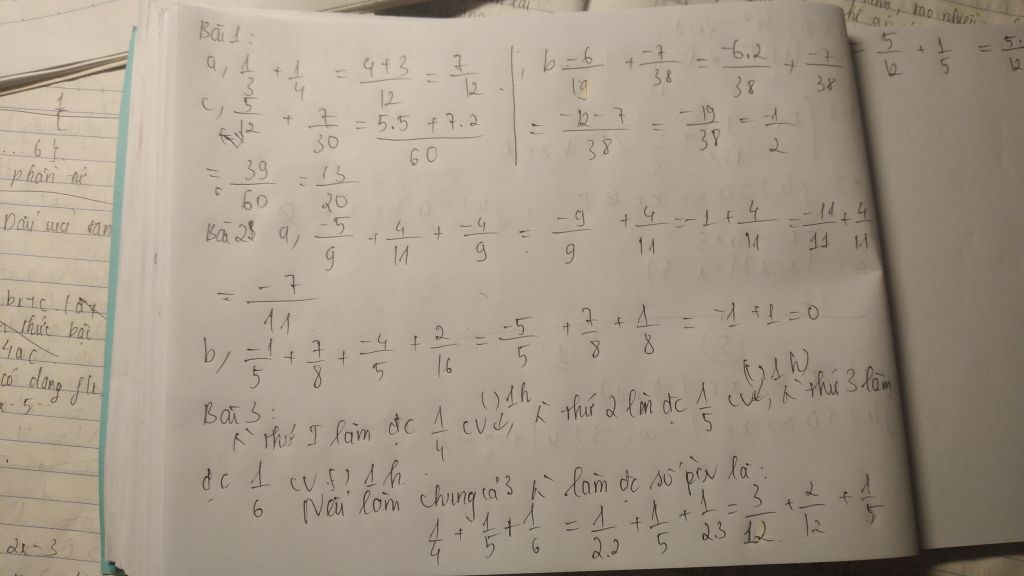 Bài 1:
a, 1/3 + 1/4 = (4+3)/12 = 7/12
b = -6/19 + -7/38 = (-6.2)/38 + -7/38
= (-12-7)/38 = -19/38 = -1/2
c, 5/12 + 7/30 = (5.5 + 7.2)/60
= 39/60 = 13/20
Bài 2: a, -5/9 + 4/11 + -4/9 = -9/9 + 4/11 = -1 + 4/11 = -11/11 + 4/11
= -7/11
b, -1/5 + 7/8 + -4/5 + 2/16 = -5/5 + 7/8 + 1/8 = -1 + 1 = 0
Bài 3:
thứ I làm đc 1/4 cv () 1h, thứ 2 làm đc 1/5 cv () 1h, thứ 3 làm
đc 1/6 cv () 1h.
Nếu làm chung cả 3 làm đc số là:
1/4 + 1/5 + 1/6 = 1/2.2 + 1/5 + 1/23 = 3/12 + 2/12 + 1/5
= 5/12 + 1/5 = 5.
12
... 6
phân
Dấu
bx+c
thức bài
4ac
có dạng
2x-3